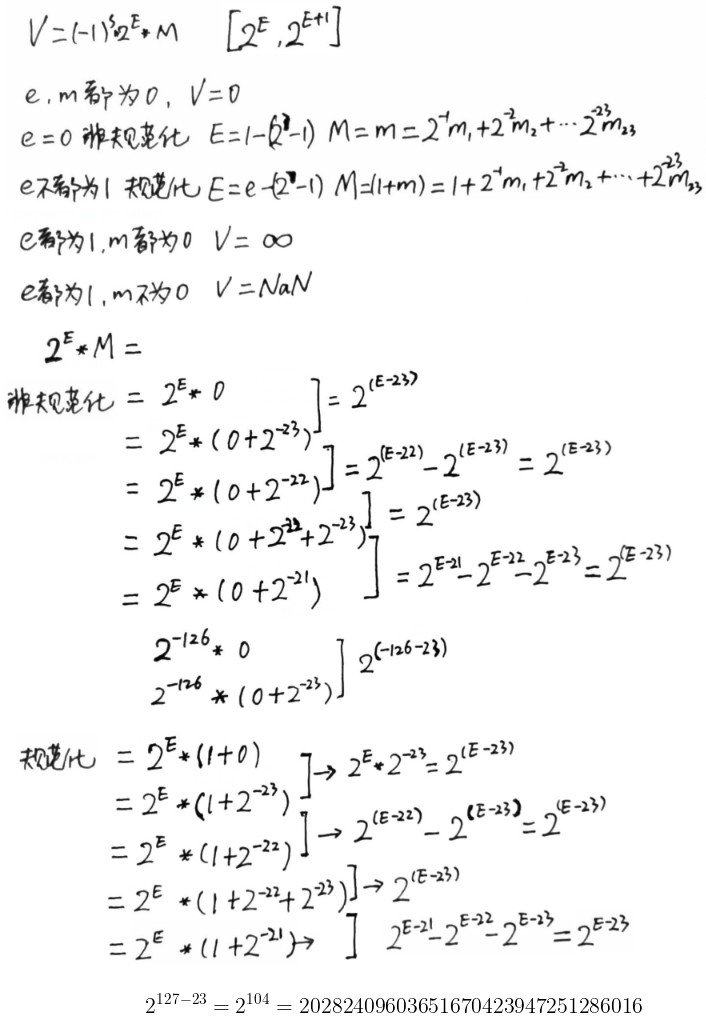 V=(-1)^S 2^E * M [2^E, 2^{E+1}]
e.m都为0, V=0
e=0 非规范化 E=1-(2^7-1) M=m=2^{-1}m_1+2^{-2}m_2+…2^{-23}m_{23}
e不都为1 规范化 E=e-(2^7-1) M=(1+m)=1+2^{-1}m_1+2^{-2}m_2+…+2^{-23}m_{23}
e都为1,m都为0 V=∞
e都为1,m不为0 V=NaN
2^E*M=
非规范化 = 2^E*0 ] = 2^{(E-23)}
= 2^E*(0+2^{-23}) ] = 2^{(E-22)}-2^{(E-23)} = 2^{(E-23)}
= 2^E*(0+2^{-22}) ] = 2^{(E-23)}
= 2^E*(0+2^{-22}+2^{-23}) ] = 2^{E-21}-2^{E-22}-2^{E-23}=2^{(E-23)}
= 2^E*(0+2^{-21})
2^{-126}*0 ] 2^{(-126-23)}
2^{-126}*(0+2^{-23})
规范化 = 2^E*(1+0) ]→ 2^E*2^{-23}=2^{(E-23)}
= 2^E*(1+2^{-23}) ]→ 2^{(E-22)}-2^{(E-23)}=2^{(E-23)}
= 2^E*(1+2^{-22})
= 2^E*(1+2^{-22}+2^{-23}) ]→ 2^{(E-23)}
= 2^E*(1+2^{-21})→ ] 2^{E-21}-2^{E-22}-2^{E-23}=2^{E-23}
2^{127-23} = 2^{104} = 20282409603651670423947251286016